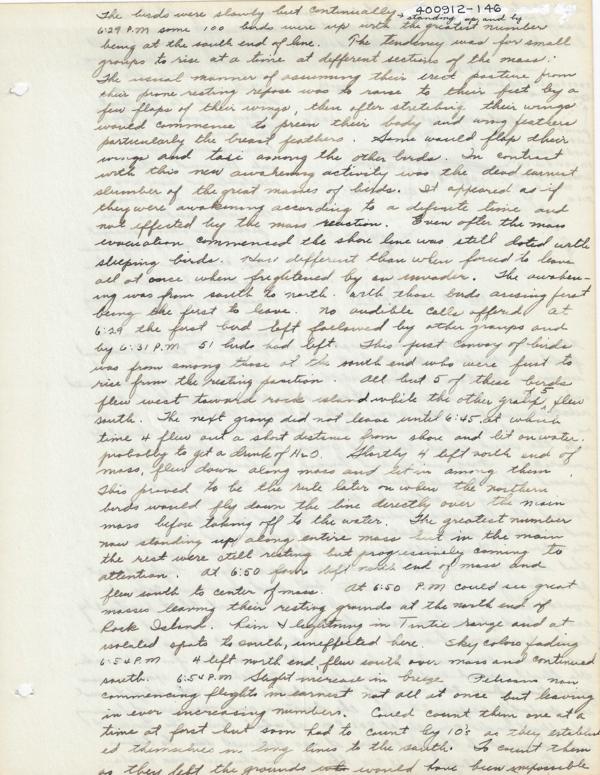 400912-146
The birds were slowly but continually standing up and by
6:29 P.M some 100 birds were up with the greatest number
being at the south end of line. The tendency was for small
groups to rise at a time at different sections of the mass.
The usual manner of assuming their erect posture from
their prone resting repose was to raise to their feet by a
few flaps of their wings, then after stretching their wings
would commence to preen their body and wing feathers
particularly the breast feathers. Some would flap their
wings and taxi among the other birds. In contrast
with this new awakening activity was the dead earnest
slumber of the great masses of birds. It appeared as if
they were awakening according to a definite time and
not effected by the mass reaction. Even after the mass
evacuation commenced the shore line was still doted with
sleeping birds. How different than when forced to leave
all at once when frightened by an invader. The awaken-
ing was from south to north. with those birds arising first
being the first to leave. No audible calls offered. At
6:29 the first bird left followed by other groups and
by 6:31 P.M 51 birds had left. This first convoy of birds
was from among those at the south end who were first to
rise from the resting position. All but 5 of these birds
flew west toward rock island while the other group, 5, flew
south. The next group did not leave until 6:45 at which
time 4 flew out a short distance from shore and lit on water.
probably to get a drink of H2O. Shortly 4 left north end of
mass, flew down along mass and lit in among them.
This proved to be the rule later on when the northern
birds would fly down the line directly over the main
mass before taking off to the water. The greatest number
now standing up along entire mass but in the main
the rest were still resting but progressively coming to
attention. At 6:50 four left north end of mass and
flew south to center of mass. At 6:50 P.M could see great
masses leaving their resting grounds at the north end of
Rock Island. Rain & lightning in Tintic range and at
isolated spots to south, uneffected here. Sky colors fading
6:54 P.M 4 left north end, flew south over mass and continued
south. 6:54 P.M Slight increase in breeze Pelicans now
commencing flights in earnest not all at once but leaving
in ever increasing numbers. Could count them one at a
time at first but soon had to count by 10's as they establish
ed themselves in long lines to the south. To count them
as they left the grounds would have been impossible